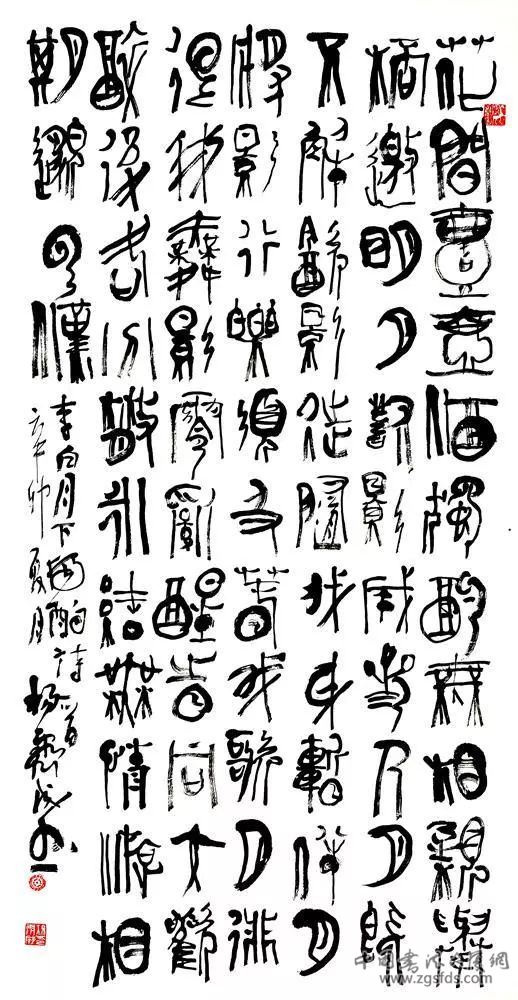 花間壹壺酒獨酌無相親舉
桮邀明月對影成三人月既
不解飲影徒隨我身暫伴月
將影行樂須及春我歌月徘
徊我舞影零亂醒時同交歡
醉後各分散永結無情遊相
期邈雲漢
李白月下獨酌詩一首
辛卯夏月
www.zgsfds.com